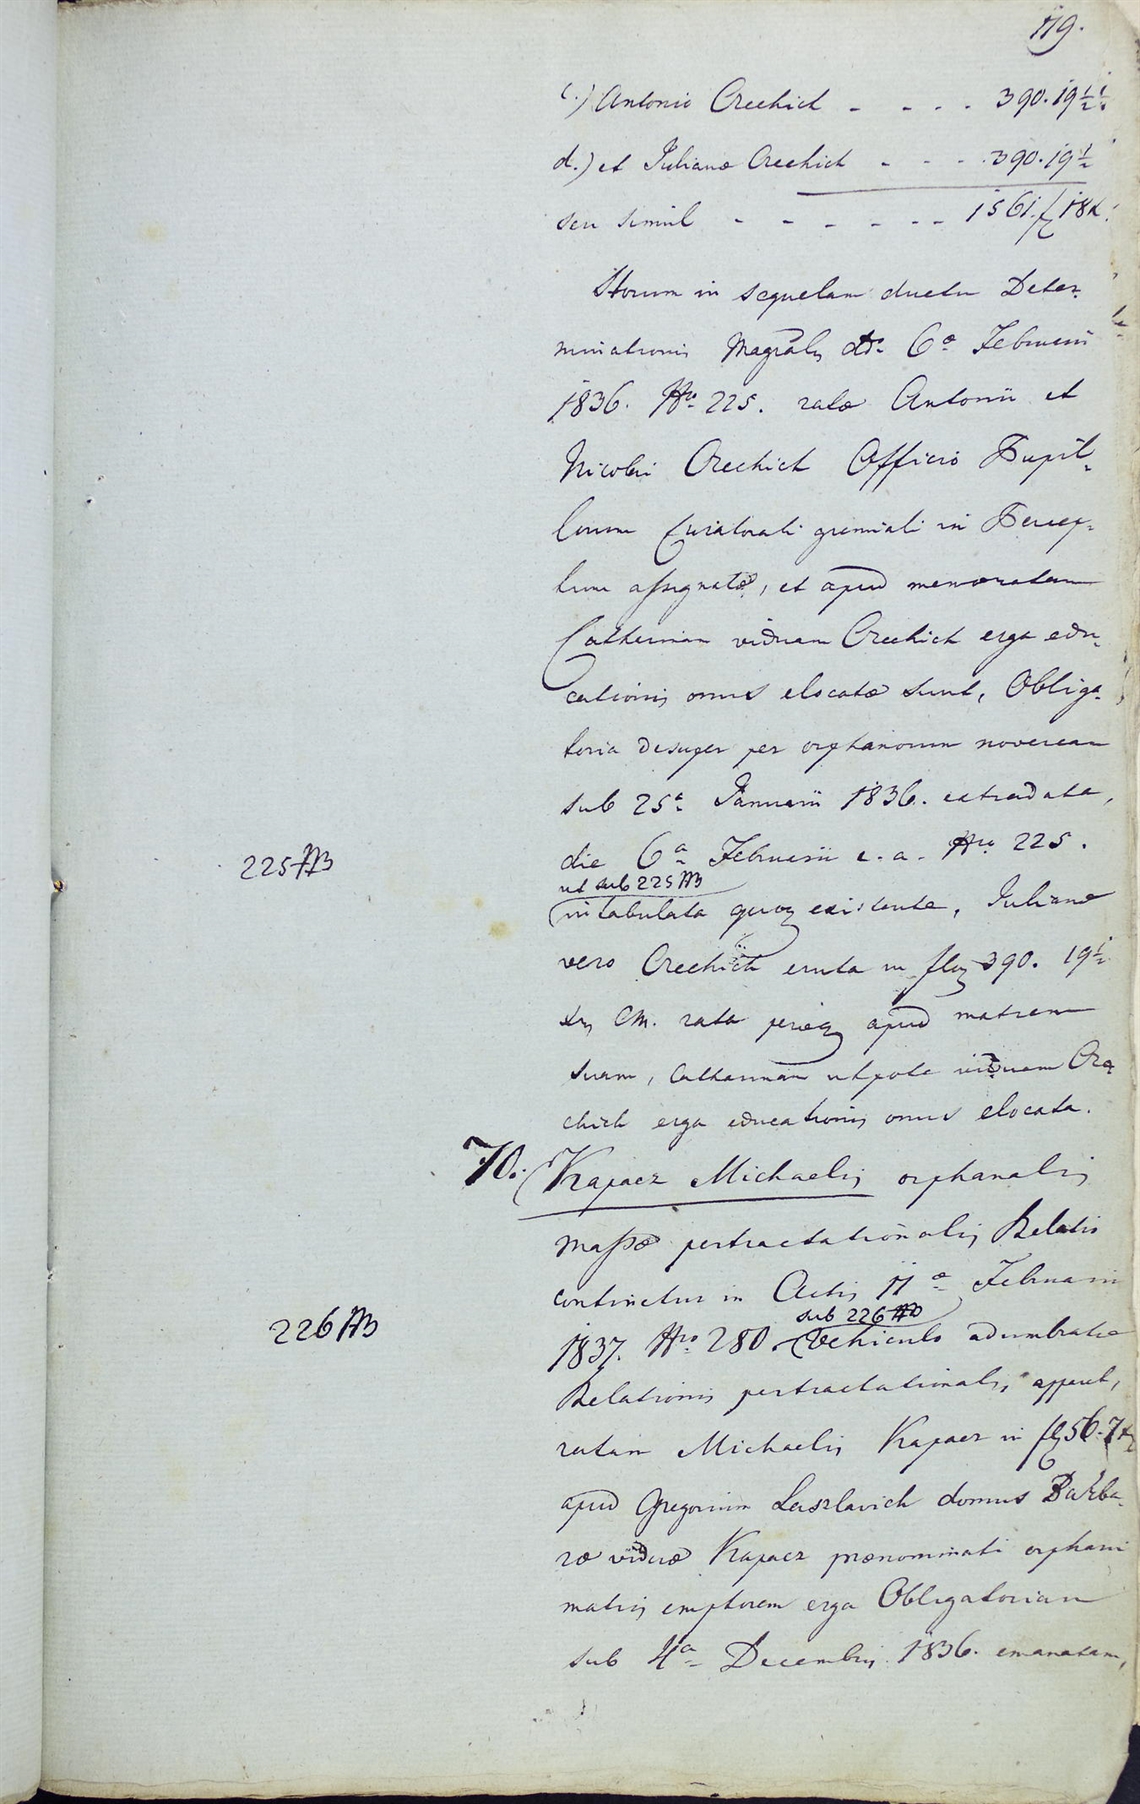 119.
c.) Antonio Orechich - - - - 390. 19 1/2
d.) et Julianæ Orechich - - - 390. 19 1/2
seu simul - - - - - - 1561. f 18 x.
Horum in sequelam ductu Deter-
minationis Magrālis dto 6æ Februarii
1836. Nro 225. ratæ Antonii et
Nicolai Orechich Officio Pupil-
lorum Curatorali gremiali in Percep-
tum assignatæ, et apud memoratam
Catharinam viduam Orechich erga edu-
cationis onus elocatæ sunt, Obliga-
toria desuper per orphanorum novercam
sub 25a Januarii 1836. extradata,
225 AB
die 6a Februarii e. a. Nro 225.
ut sub 225 AB
intabulata quoq existente, Julianæ
vero Orechich eruta in flnis 390. 19 1/2
xr CM. rata periq apud matrem
suam, Catharinam utpote viduam Ore-
chich erga educationis onus elocata.
70. Kapacz Michaelis orphanalis
massæ pertractationalis Relatio
continetur in Actis 11æ Februarii
226 AB
sub 226 AB
1837. Nro 280. Vehiculo adumbratæ
Relationis pertractationalis, apparet,
ratam Michaelis Kapacz in fl 56. 7 x
apud Gregorium Laszlavich domus Barba-
ræ viduæ Kapacz prænominati orphani
matris emptorem erga Obligatoriam
sub 4a Decembris 1836. emanatam,